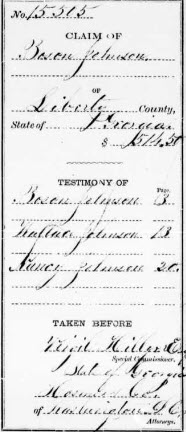 No. 15505
CLAIM OF
Boson Johnson
OF
Liberty County,
State of Georgia
$ 514.50
TESTIMONY OF
Page.
Boson Johnson 3
Wallace Johnson 13
Nancy Johnson 20.
TAKEN BEFORE
Virgil Hillyer
Special Commissioner.
State of Georgia
of Washington D.C.
Attorneys.